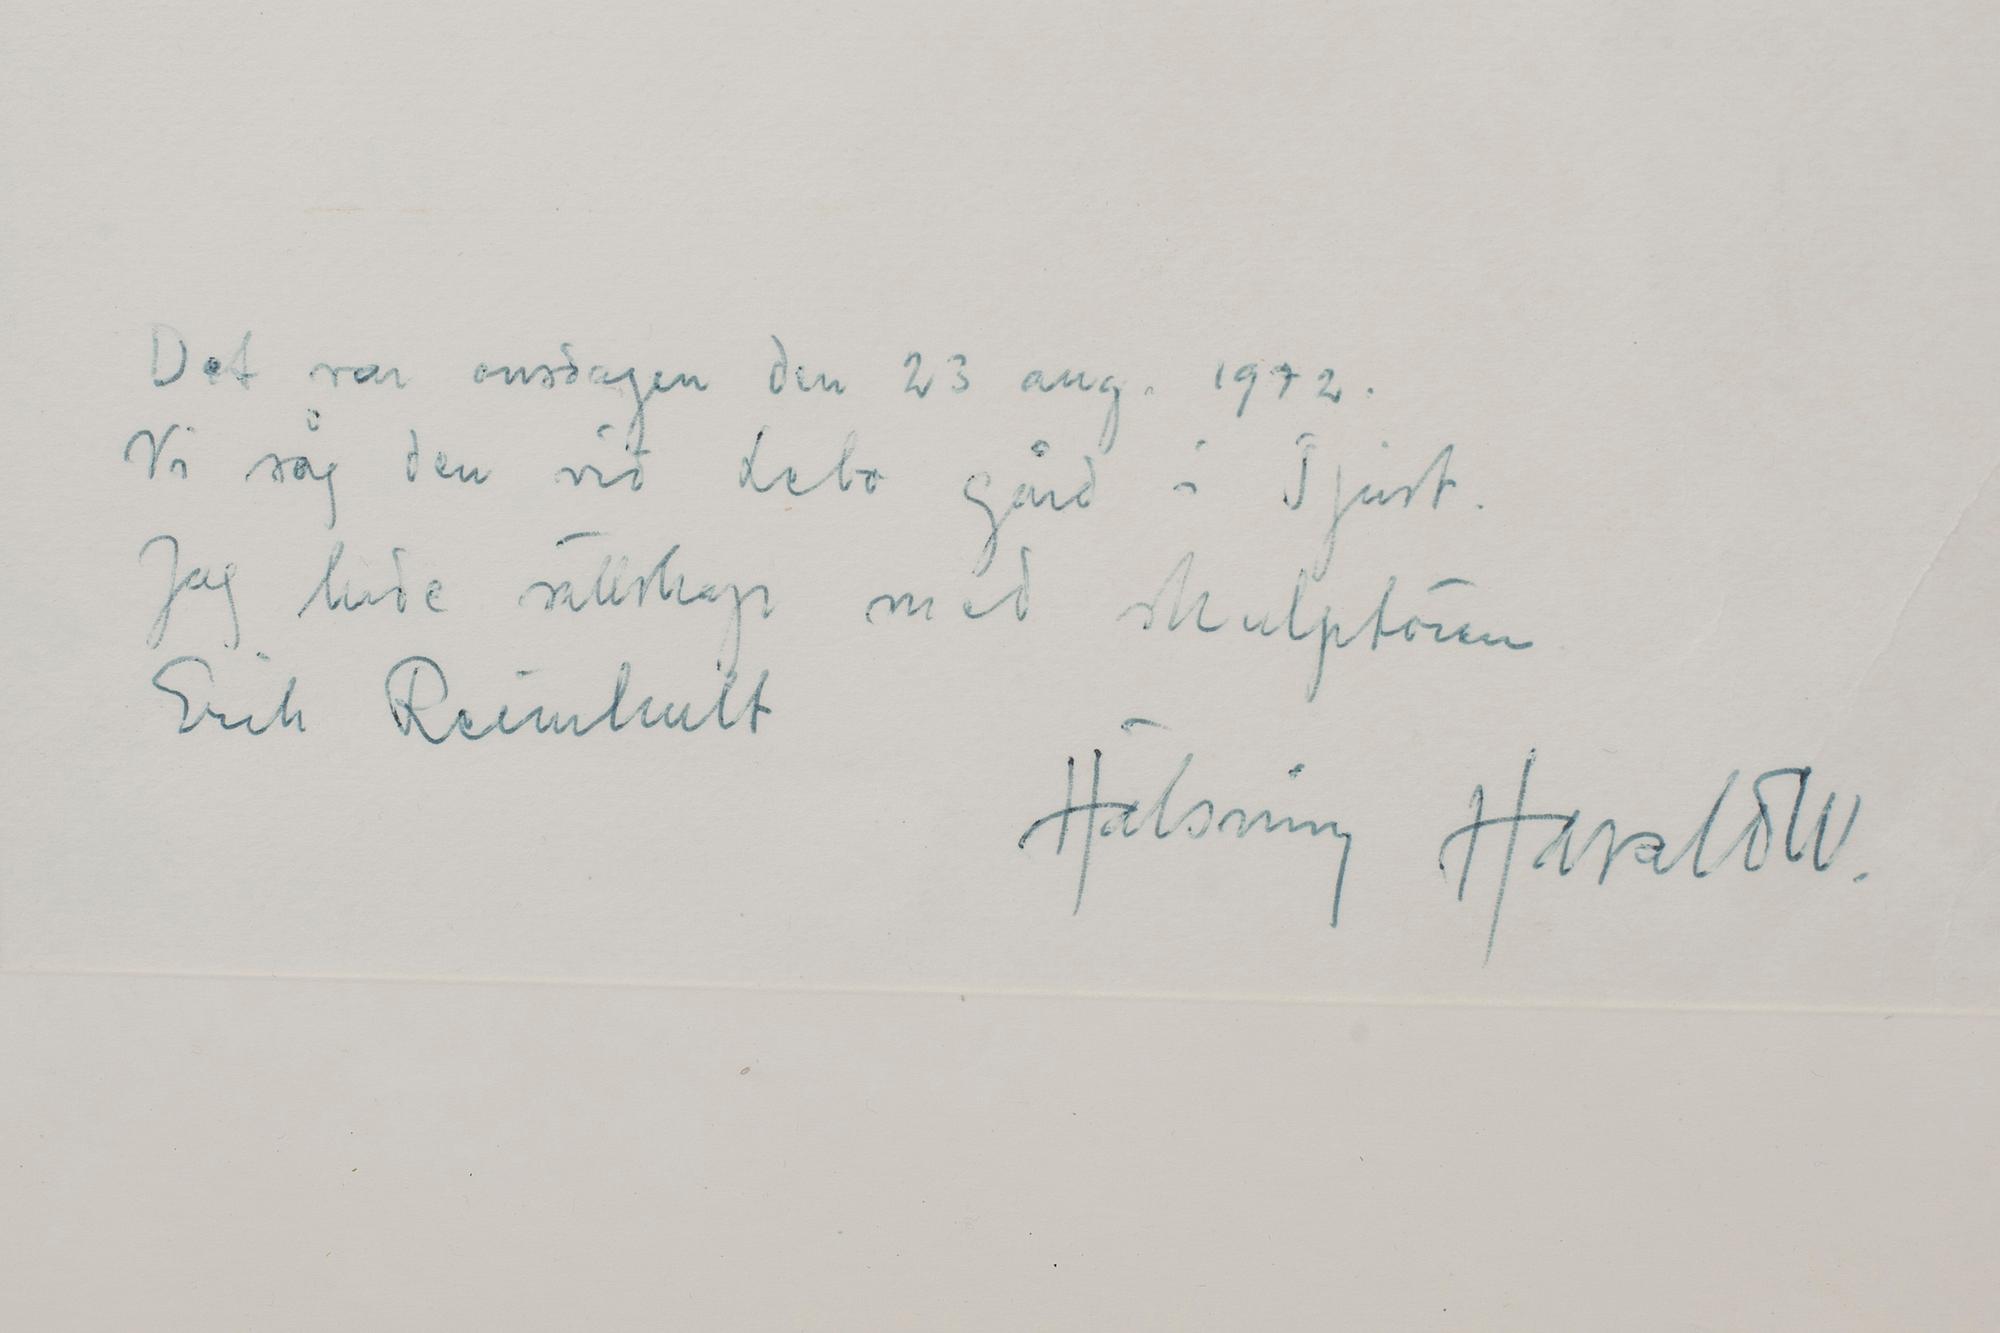 Det var onsdagen den 23 aug. 1972.
Vi såg den vid Lebo gård i Tjust.
Jag hade sällskap med skulptören
Erik Reimhult
Hälsning Harald W.